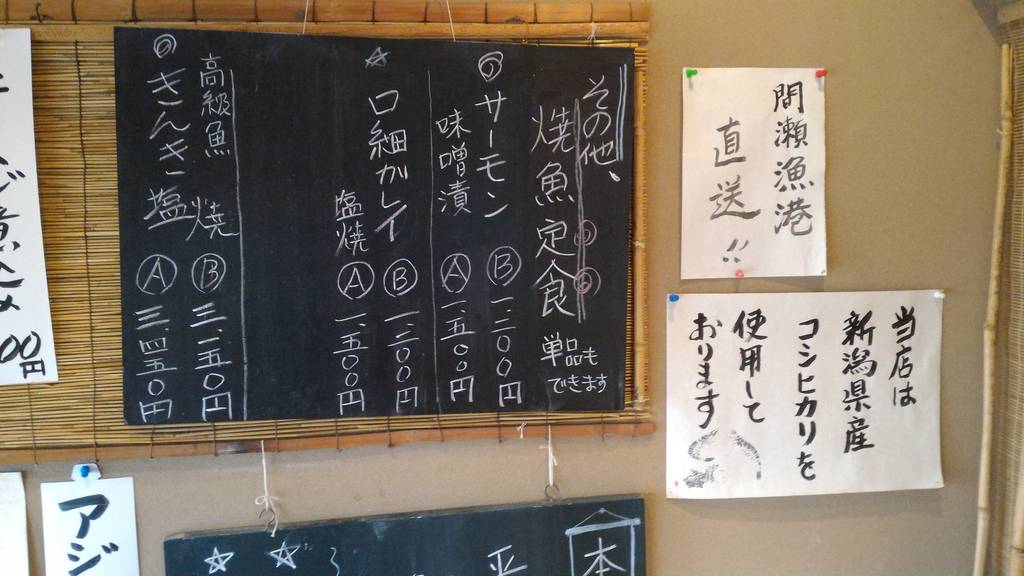 その他、
焼魚定食
単品も
できます
サーモン
味噌漬
Ⓑ 一、二〇〇円
Ⓐ 一、五〇〇円
☆
口細カレイ
塩焼
Ⓑ 一、二〇〇円
Ⓐ 一、五〇〇円
高級魚
◎きんき塩焼
Ⓑ 三、一五〇円
Ⓐ 三、四五〇円
間瀬漁港
直送〃
当店は
新潟県産
コシヒカリを
使用して
おります
00円
アジ
本
平
☆☆